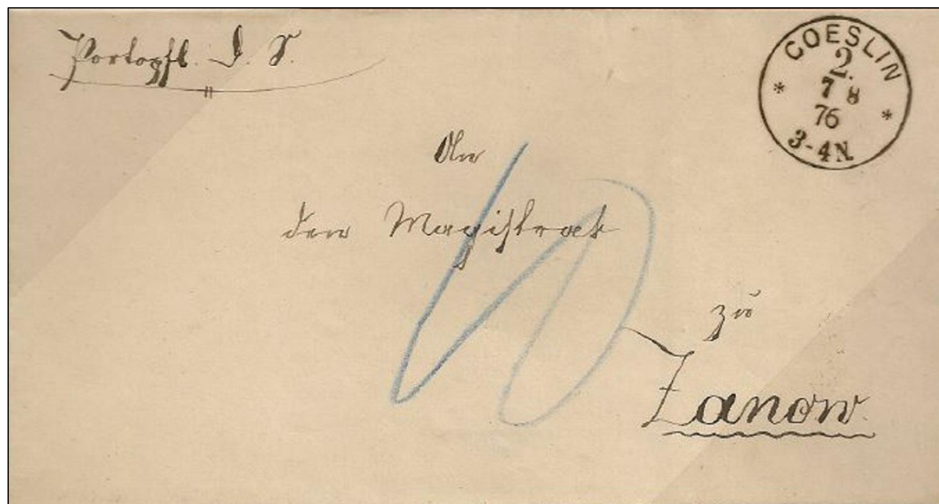 Portopfl. D. S.
COESLIN
2.
7 8
76
3-4N.
An
den Magistrat
10
zu
Zanow.